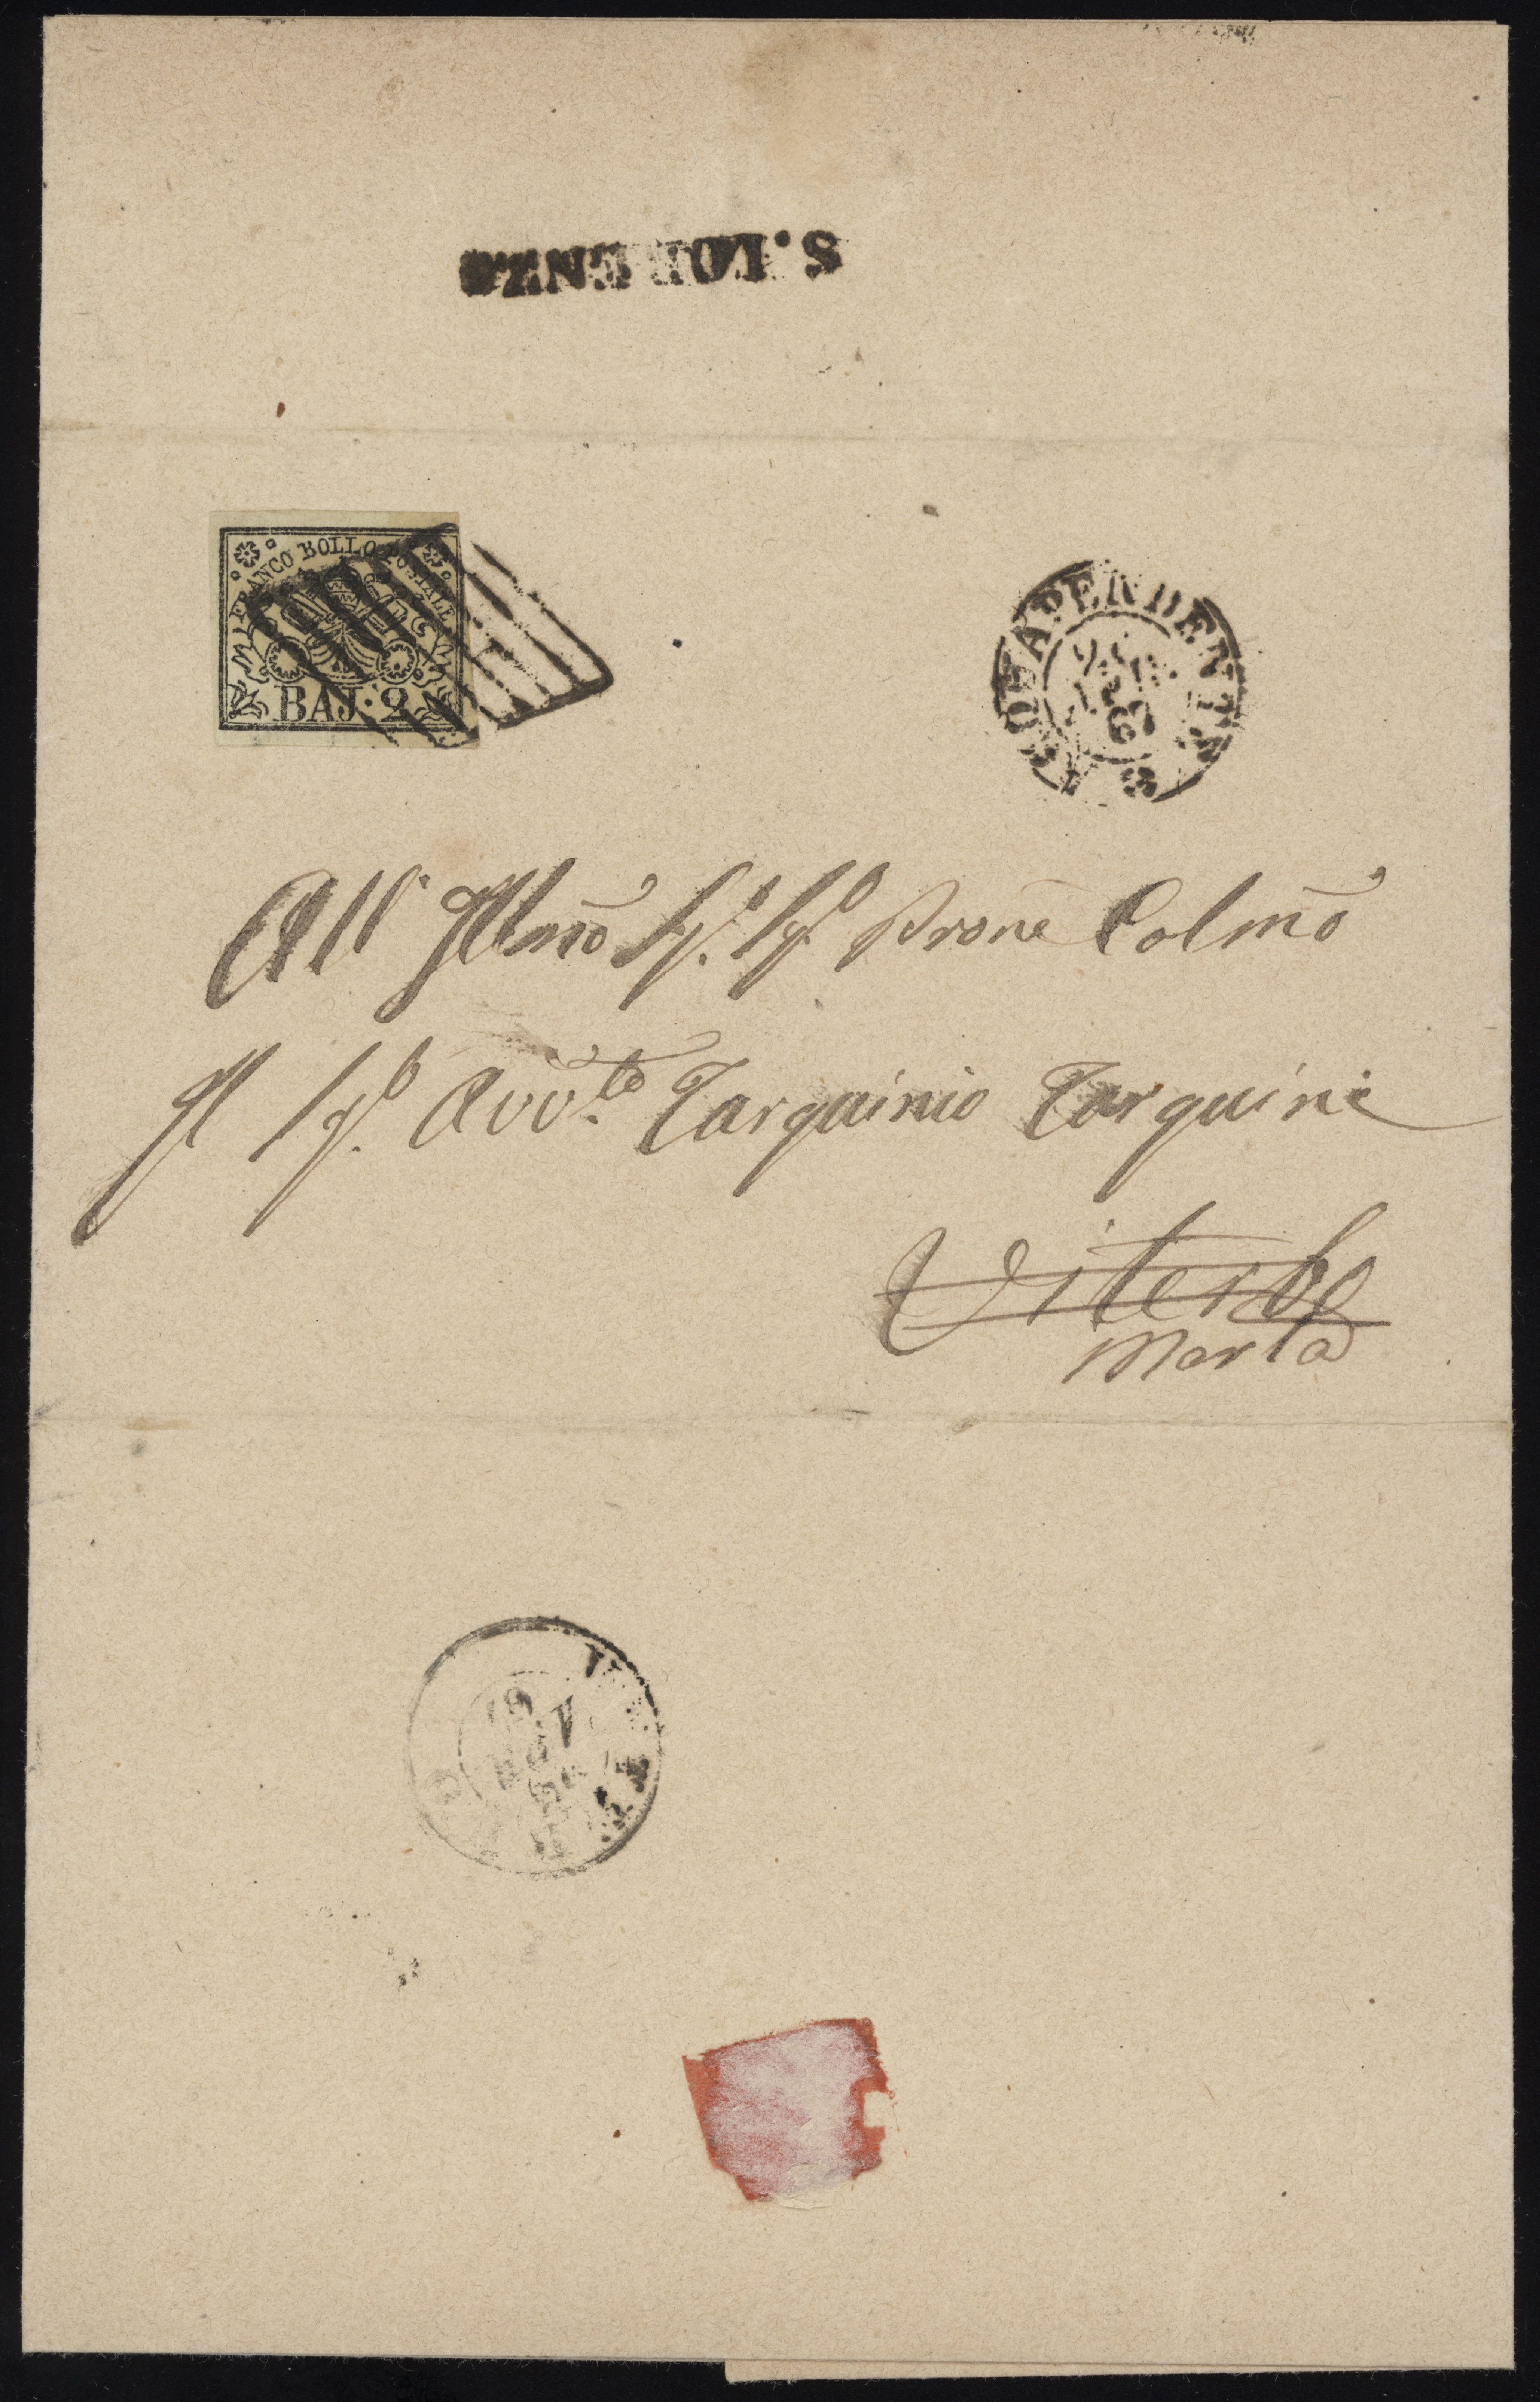 S. LORENZO
FRANCO BOLLO POSTALE
BAJ. 2
ACQUAPENDENTE
All' Illmo Sig. Sig. Prone Colmo
Il Sig. Avv.to Tarquinio Tarquini
Viterbo
Marta